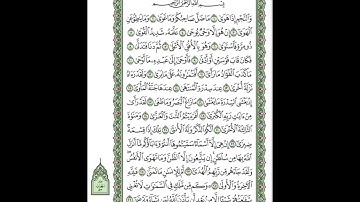 بِسْمِ اللَّهِ الرَّحْمَٰنِ الرَّحِيمِ
وَالنَّجْمِ إِذَا هَوَىٰ ١ مَا ضَلَّ صَاحِبُكُمْ وَمَا غَوَىٰ ٢ وَمَا يَنطِقُ عَنِ
الْهَوَىٰ ٣ إِنْ هُوَ إِلَّا وَحْيٌ يُوحَىٰ ٤ عَلَّمَهُ شَدِيدُ الْقُوَىٰ ٥
ذُو مِرَّةٍ فَاسْتَوَىٰ ٦ وَهُوَ بِالْأُفُقِ الْأَعْلَىٰ ٧ ثُمَّ دَنَا فَتَدَلَّىٰ ٨
فَكَانَ قَابَ قَوْسَيْنِ أَوْ أَدْنَىٰ ٩ فَأَوْحَىٰ إِلَىٰ عَبْدِهِ مَا أَوْحَىٰ ١٠ مَا
كَذَبَ الْفُؤَادُ مَا رَأَىٰ ١١ أَفَتُمَارُونَهُ عَلَىٰ مَا يَرَىٰ ١٢ وَلَقَدْ رَآهُ
نَزْلَةً أُخْرَىٰ ١٣ عِندَ سِدْرَةِ الْمُنتَهَىٰ ١٤ عِندَهَا جَنَّةُ الْمَأْوَىٰ ١٥
إِذْ يَغْشَى السِّدْرَةَ مَا يَغْشَىٰ ١٦ مَا زَاغَ الْبَصَرُ وَمَا طَغَىٰ ١٧ لَقَدْ رَأَىٰ
مِنْ آيَاتِ رَبِّهِ الْكُبْرَىٰ ١٨ أَفَرَأَيْتُمُ اللَّاتَ وَالْعُزَّىٰ ١٩ وَمَنَاةَ
الثَّالِثَةَ الْأُخْرَىٰ ٢٠ أَلَكُمُ الذَّكَرُ وَلَهُ الْأُنثَىٰ ٢١ تِلْكَ إِذًا قِسْمَةٌ
ضِيزَىٰ ٢٢ إِنْ هِيَ إِلَّا أَسْمَاءٌ سَمَّيْتُمُوهَا أَنتُمْ وَآبَاؤُكُم مَّا أَنزَلَ
اللَّهُ بِهَا مِن سُلْطَانٍ إِن يَتَّبِعُونَ إِلَّا الظَّنَّ وَمَا تَهْوَى الْأَنفُسُ
وَلَقَدْ جَاءَهُم مِّن رَّبِّهِمُ الْهُدَىٰ ٢٣ أَمْ لِلْإِنسَانِ مَا تَمَنَّىٰ ٢٤ فَلِلَّهِ
الْآخِرَةُ وَالْأُولَىٰ ٢٥ وَكَم مِّن مَّلَكٍ فِي السَّمَاوَاتِ لَا تُغْنِي
شَفَاعَتُهُمْ شَيْئًا إِلَّا مِن بَعْدِ أَن يَأْذَنَ اللَّهُ لِمَن يَشَاءُ وَيَرْضَىٰ ٢٦